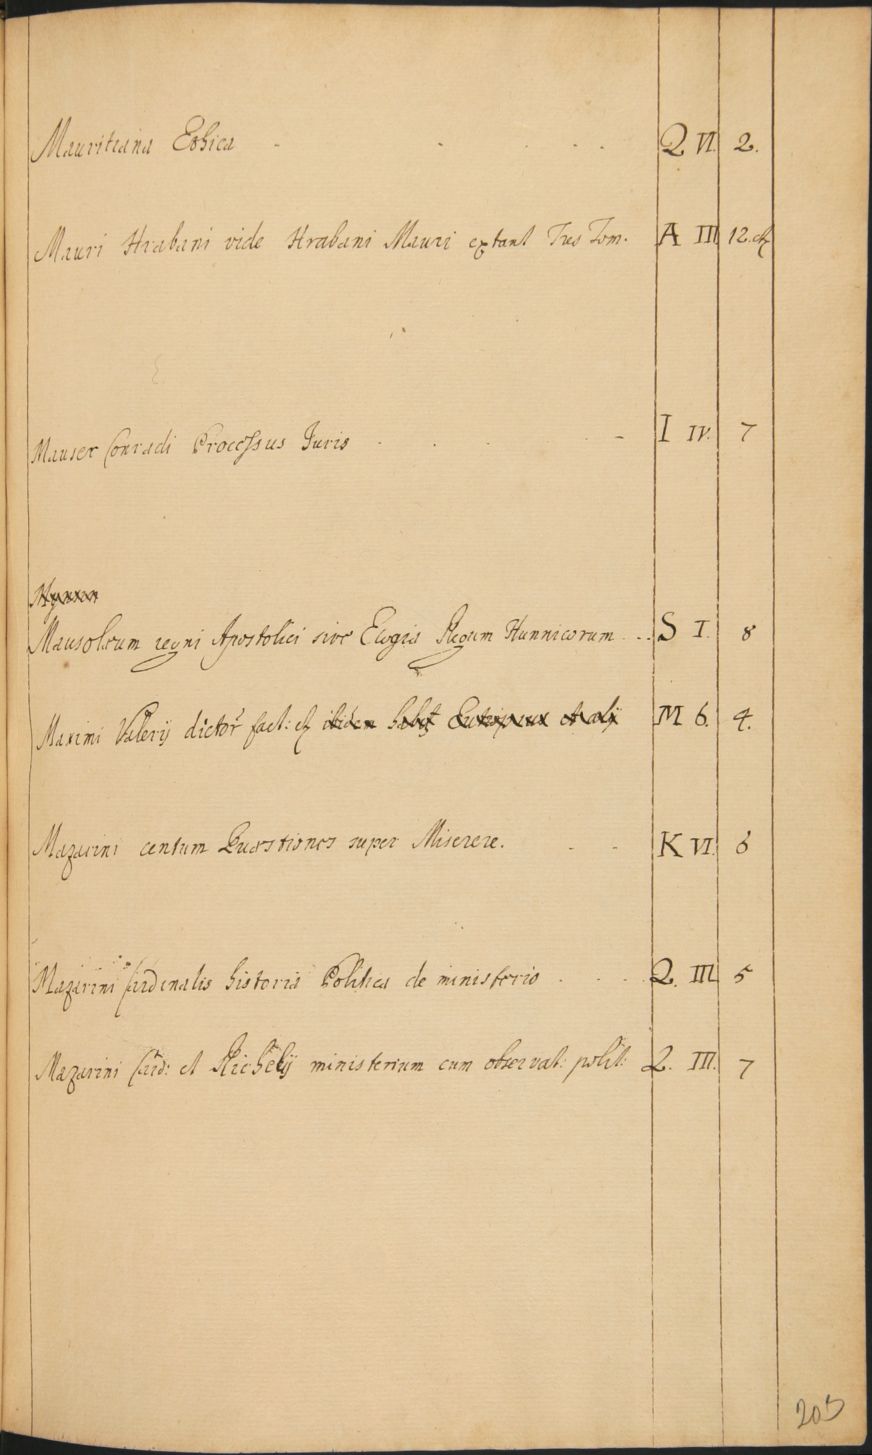 Mauritiana Ethica - - . - - Q VI. 2.
Mauri Hrabani vide Hrabani Mauri extant Tres Tom. A III 12. et
Mauser Conradi Processus Juris - . - . - I IV. 7
Mausoleum regni Apostolici sive Elogia Regum Hunnicorum - .. S I. 8
Maximi Valerij dictor fact: et ibidem habet Eutropius et alij M 6. 4.
Mazarini centum Quaestiones super Miserere. - - K VI. 6
Mazarini Cardinalis historia Politica de ministerio . - - . Q. III 5
Mazarini Card: et Richelij ministerium cum observat: polit: Q. III. 7
205